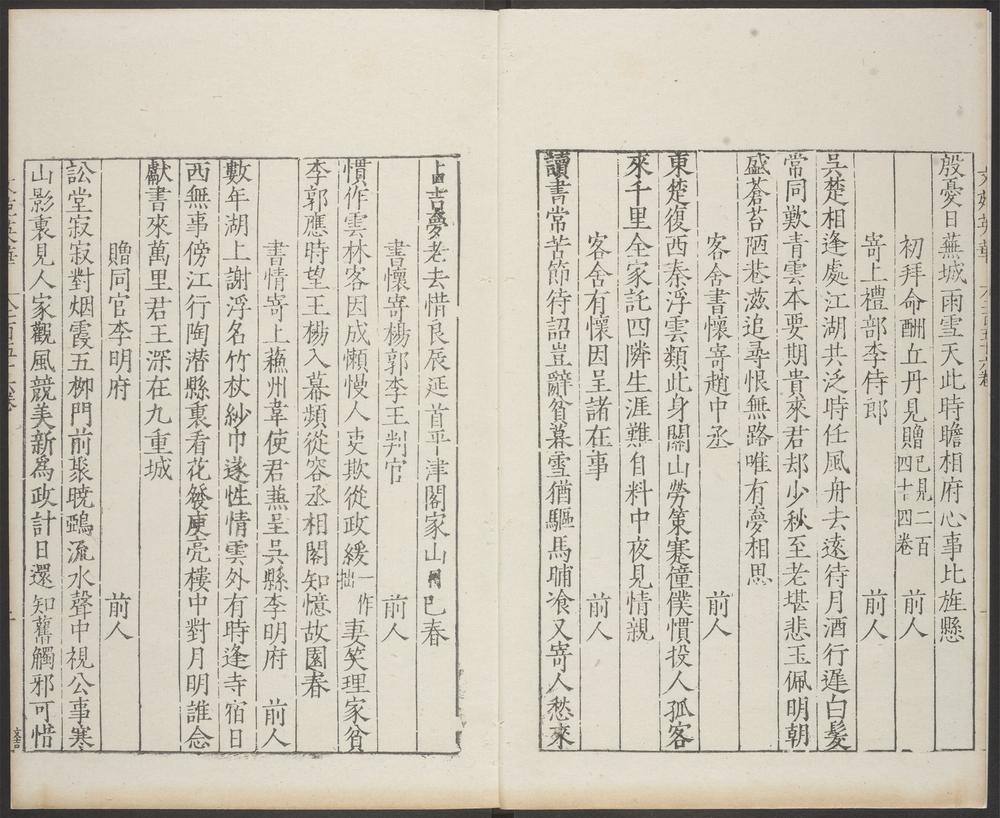 殷憂日蕪城雨雪天此時瞻相府心事比旌懸
初拜命酬丘丹見贈已見二百四十四卷 前人
寄上禮部李侍郎 前人
吳楚相逢處江湖共泛時任風舟去遠待月酒行遲白髮
常同歎青雲本要期貴來君却少秋至老堪悲玉佩明朝
盛蒼苔陋巷滋追尋恨無路唯有夢相思
客舍書懷寄趙中丞 前人
東楚復西秦浮雲類此身關山勞策蹇僮僕慣投人孤客
來千里全家託四隣生涯難自料中夜見情親
客舍有懷因呈諸在事 前人
讀書常苦節待詔豈辭貧暮雪猶驅馬晡飡又寄人愁來
占吉夢老去惜良辰延首平津閣家山日已春
書懷寄楊郭李王判官 前人
慣作雲林客因成懶慢人吏欺從政緩一作拙妻笑理家貧
李郭應時望王楊入幕頻從容丞相閣知憶故園春
書情寄上蘓州韋使君兼呈吳縣李明府 前人
數年湖上謝浮名竹杖紗巾遂性情雲外有時逢寺宿日
西無事傍江行陶潜縣裏看花發庾亮樓中對月明誰念
獻書來萬里君王深在九重城
贈同官李明府 前人
訟堂寂寂對烟霞五柳門前聚曉鵶流水聲中視公事寒
山影裏見人家觀風競美新為政計日還知舊觸邪可惜